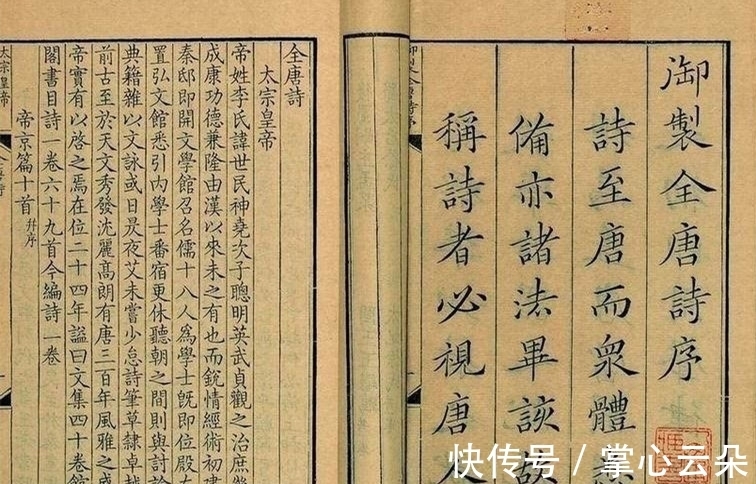 御製全唐詩序
詩至唐而衆體悉
備亦諸法畢該故
稱詩者必視唐人
全唐詩
太宗皇帝
帝姓李氏諱世民神堯次子聰明英武貞觀之治庶幾
成康功德兼隆由漢以來未之有也而銳情經術初建
秦邸即開文學館召名儒十八人爲學士既即位殿左
置弘文館悉引內學士番宿更休聽朝之間則與討論
典籍雜以文詠或日昃夜艾未嘗少怠詩筆草隸卓越
前古至於天文秀發沈麗高朗有唐三百年風雅之盛
帝實有以啓之焉在位二十四年諡曰文集四十卷館
閣書目詩一卷六十九首今編詩一卷
帝京篇十首 幷序
太宗皇帝
快传号 / 掌心云朵